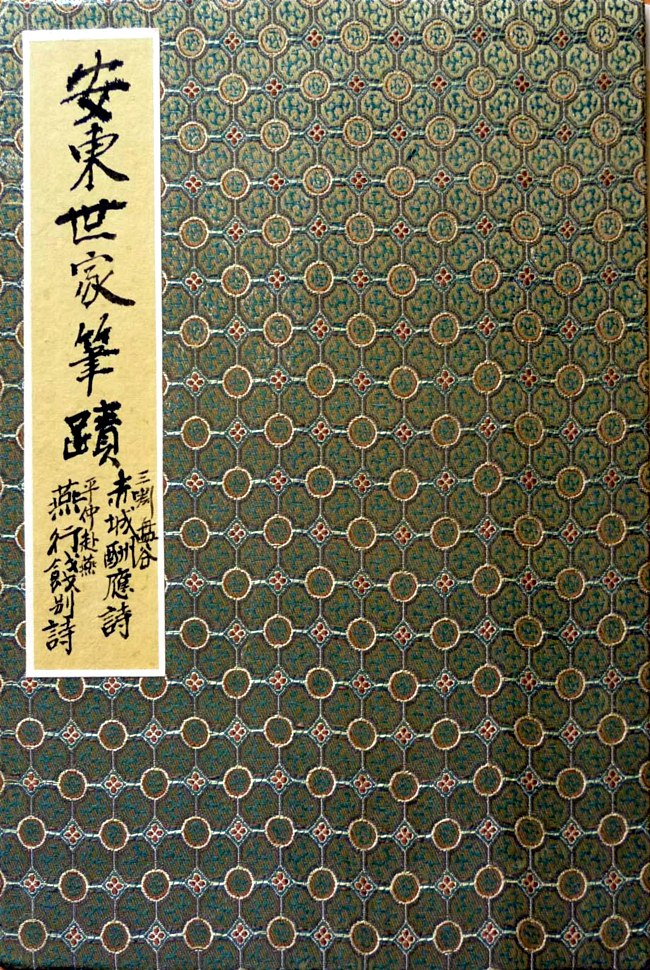 安東世家筆蹟
三淵 谷
赤城酬應詩
平仲赴燕
燕行餞別詩